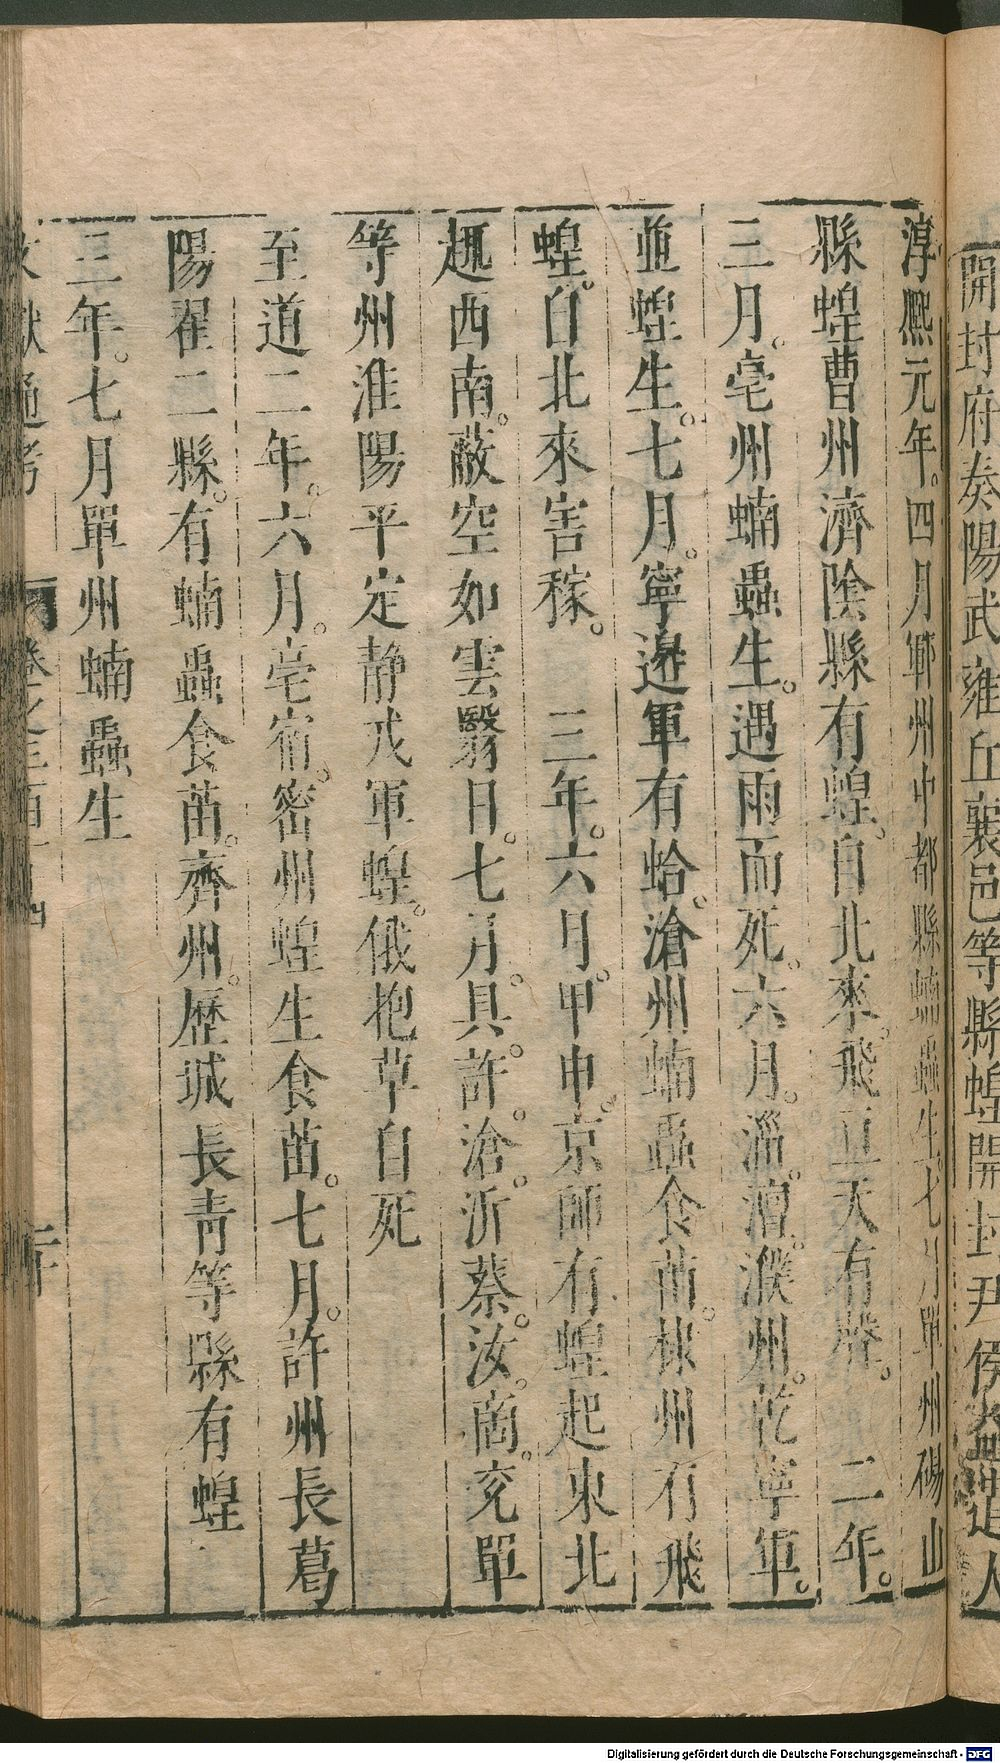 開封府奏陽武雍丘襄邑等縣蝗開封尹侯益遣人
淳熈元年。四月鄆州中都縣蝻蟲生七月單州碭山
縣蝗曹州濟陰縣有蝗。自北來。飛亘天有聲。　二年。
三月。亳州蝻蟲生。遇雨而死。六月。淄。澶。濮州。乾寧軍。
並蝗生。七月。寧邊軍有蛤。滄州蝻蟲食苗。棣州有飛
蝗。自北來害稼。　三年。六月。甲申。京師有蝗起東北
趣西南。蔽空如雲翳日。七月。具。許。滄。沂蔡。汝。商。兖單
等州淮陽平定静戎軍蝗。俄抱草自死
至道二年。六月。亳宿。密州蝗生食苗。七月。許州長葛
陽翟二縣。有蝻蟲食苗。齊州。歷城長靑等縣有蝗
三年。七月單州蝻蟲生
文獻通考
Digitalisierung gefördert durch die Deutsche Forschungsgemeinschaft - DFG